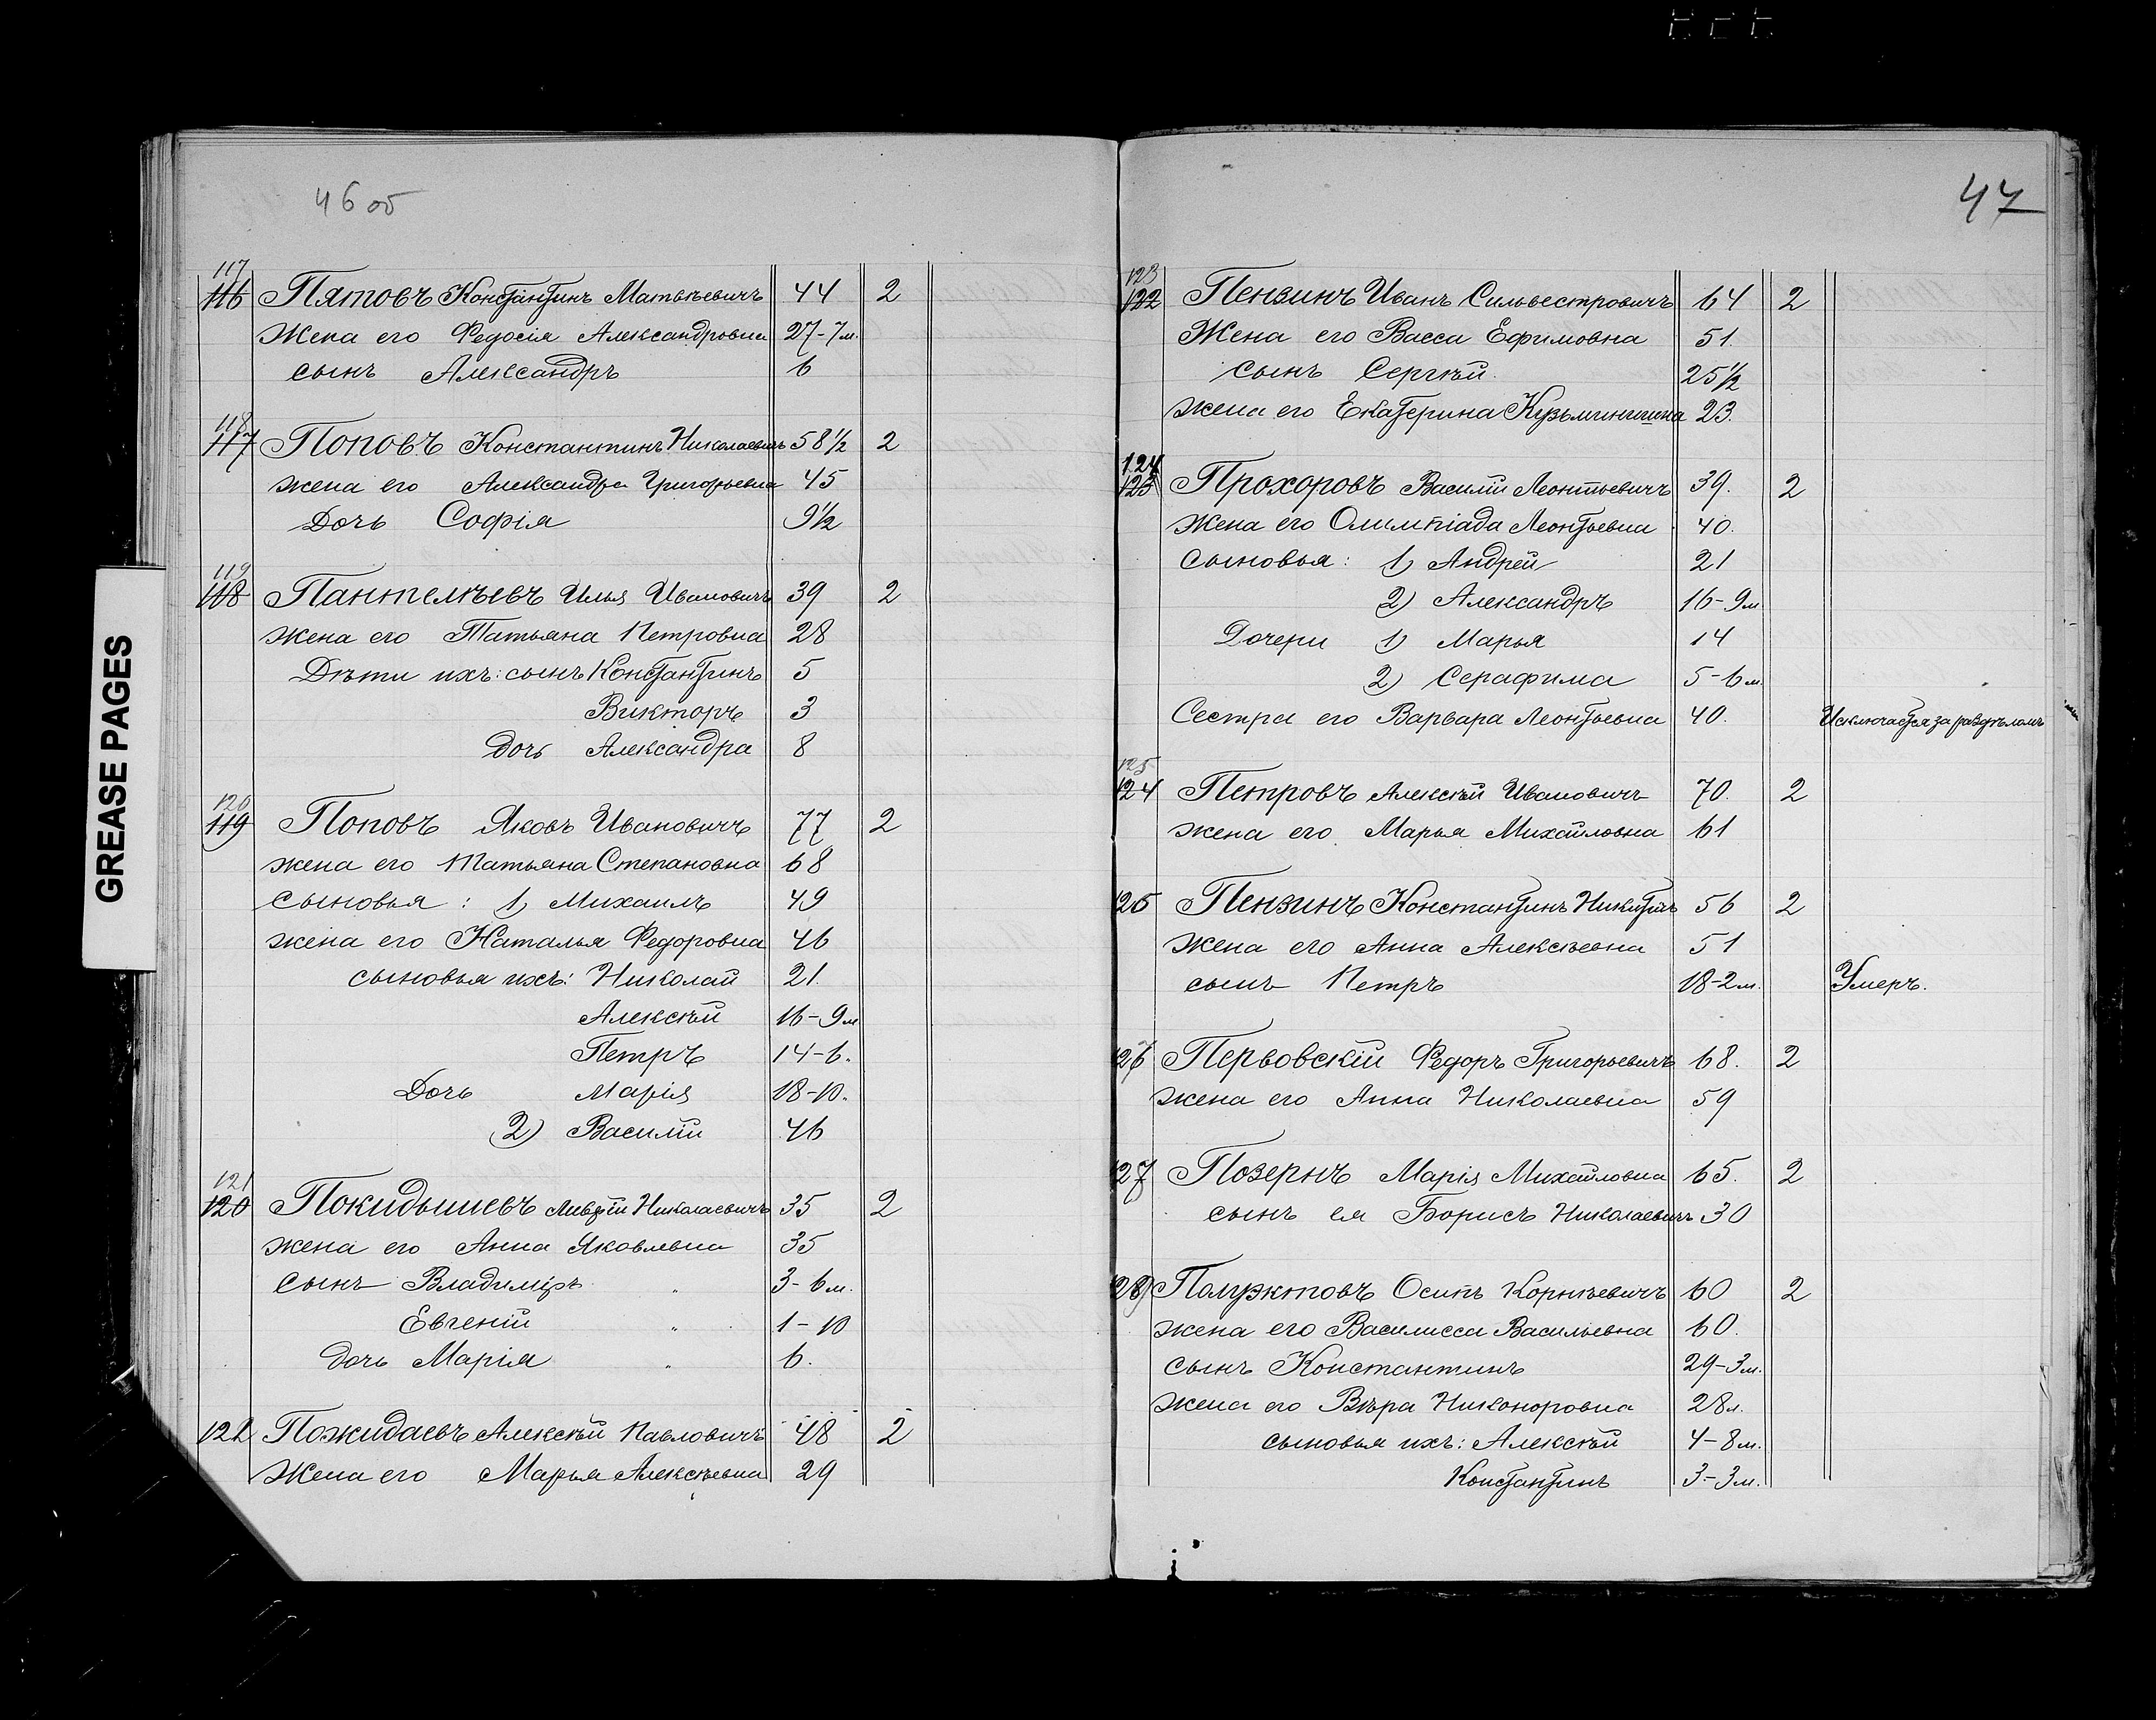 46 об
117
116 Пятовъ Константинъ Матвѣевичъ 44 2
Жена его Федосія Александровна 27-7м.
сынъ Александръ 6
118
117 Поповъ Константинъ Николаевичъ 58½ 2
жена его Александра Григорьевна 45
Дочь Софія 9½
119
118 Пантелѣевъ Илья Ивановичъ 39 2
жена его Татьяна Петровна 28
Дѣти ихъ: сынъ Константинъ 5
Викторъ 3
дочь Александра 8
120
119 Поповъ Яковъ Ивановичъ 77 2
жена его Татьяна Степановна 68
Сыновья : 1) Михаилъ 49
жена его Наталья Федоровна 46
сыновья ихъ: Николай 21.
Алексѣй 16-9м
Петръ 14-6.
Дочь Марія 18-10.
2) Василій 46
121
120 Покидышевъ Николаевичъ 35 2
жена его Анна Яковлевна 35
Сынъ Владиміръ " 3-6м.
Евгеній " 1-10
дочь Марія " 6.
122 Пожидаевъ Алексѣй Павловичъ 48 2
Жена его Марья Алексѣевна 29
47
123
122 Пензинъ Иванъ Сильвестровичъ 64 2
Жена его Васса Ефимовна 51
сынъ Сергѣй 25½
жена его Екатерина 23.
124
123 Прохоровъ Василій Леонтьевичъ 39. 2
Жена его Олимпіада Леонтьевна 40.
Сыновья: 1) Андрей 21
2) Александръ 16-9м
Дочери 1) Марья 14
2) Серафима 5-6м.
Сестра его Варвара Леонтьевна 40. Исключается за раздѣломъ
125
124 Петровъ Алексѣй Ивановичъ 70. 2
жена его Марья Михайловна 61
126 Пензинъ Константинъ Никитичъ 56 2
Жена его Анна Алексѣевна 51
сынъ Петръ 18-2м. Умеръ.
127 Перьовскій Федоръ Григорьевичъ 68. 2
жена его Анна Николаевна 59
128 Позернъ Марія Михайловна 65. 2
сынъ ея Борисъ Николаевичъ 30
129 Полуэктовъ Осипъ Корнѣевичъ 60 2
жена его Василисса Васильевна 60.
сынъ Константинъ 29-3м.
жена его Вѣра Никоноровна 28л.
сыновья ихъ: Алексѣй 4-8м.
Константинъ 3-3м.
GREASE PAGES